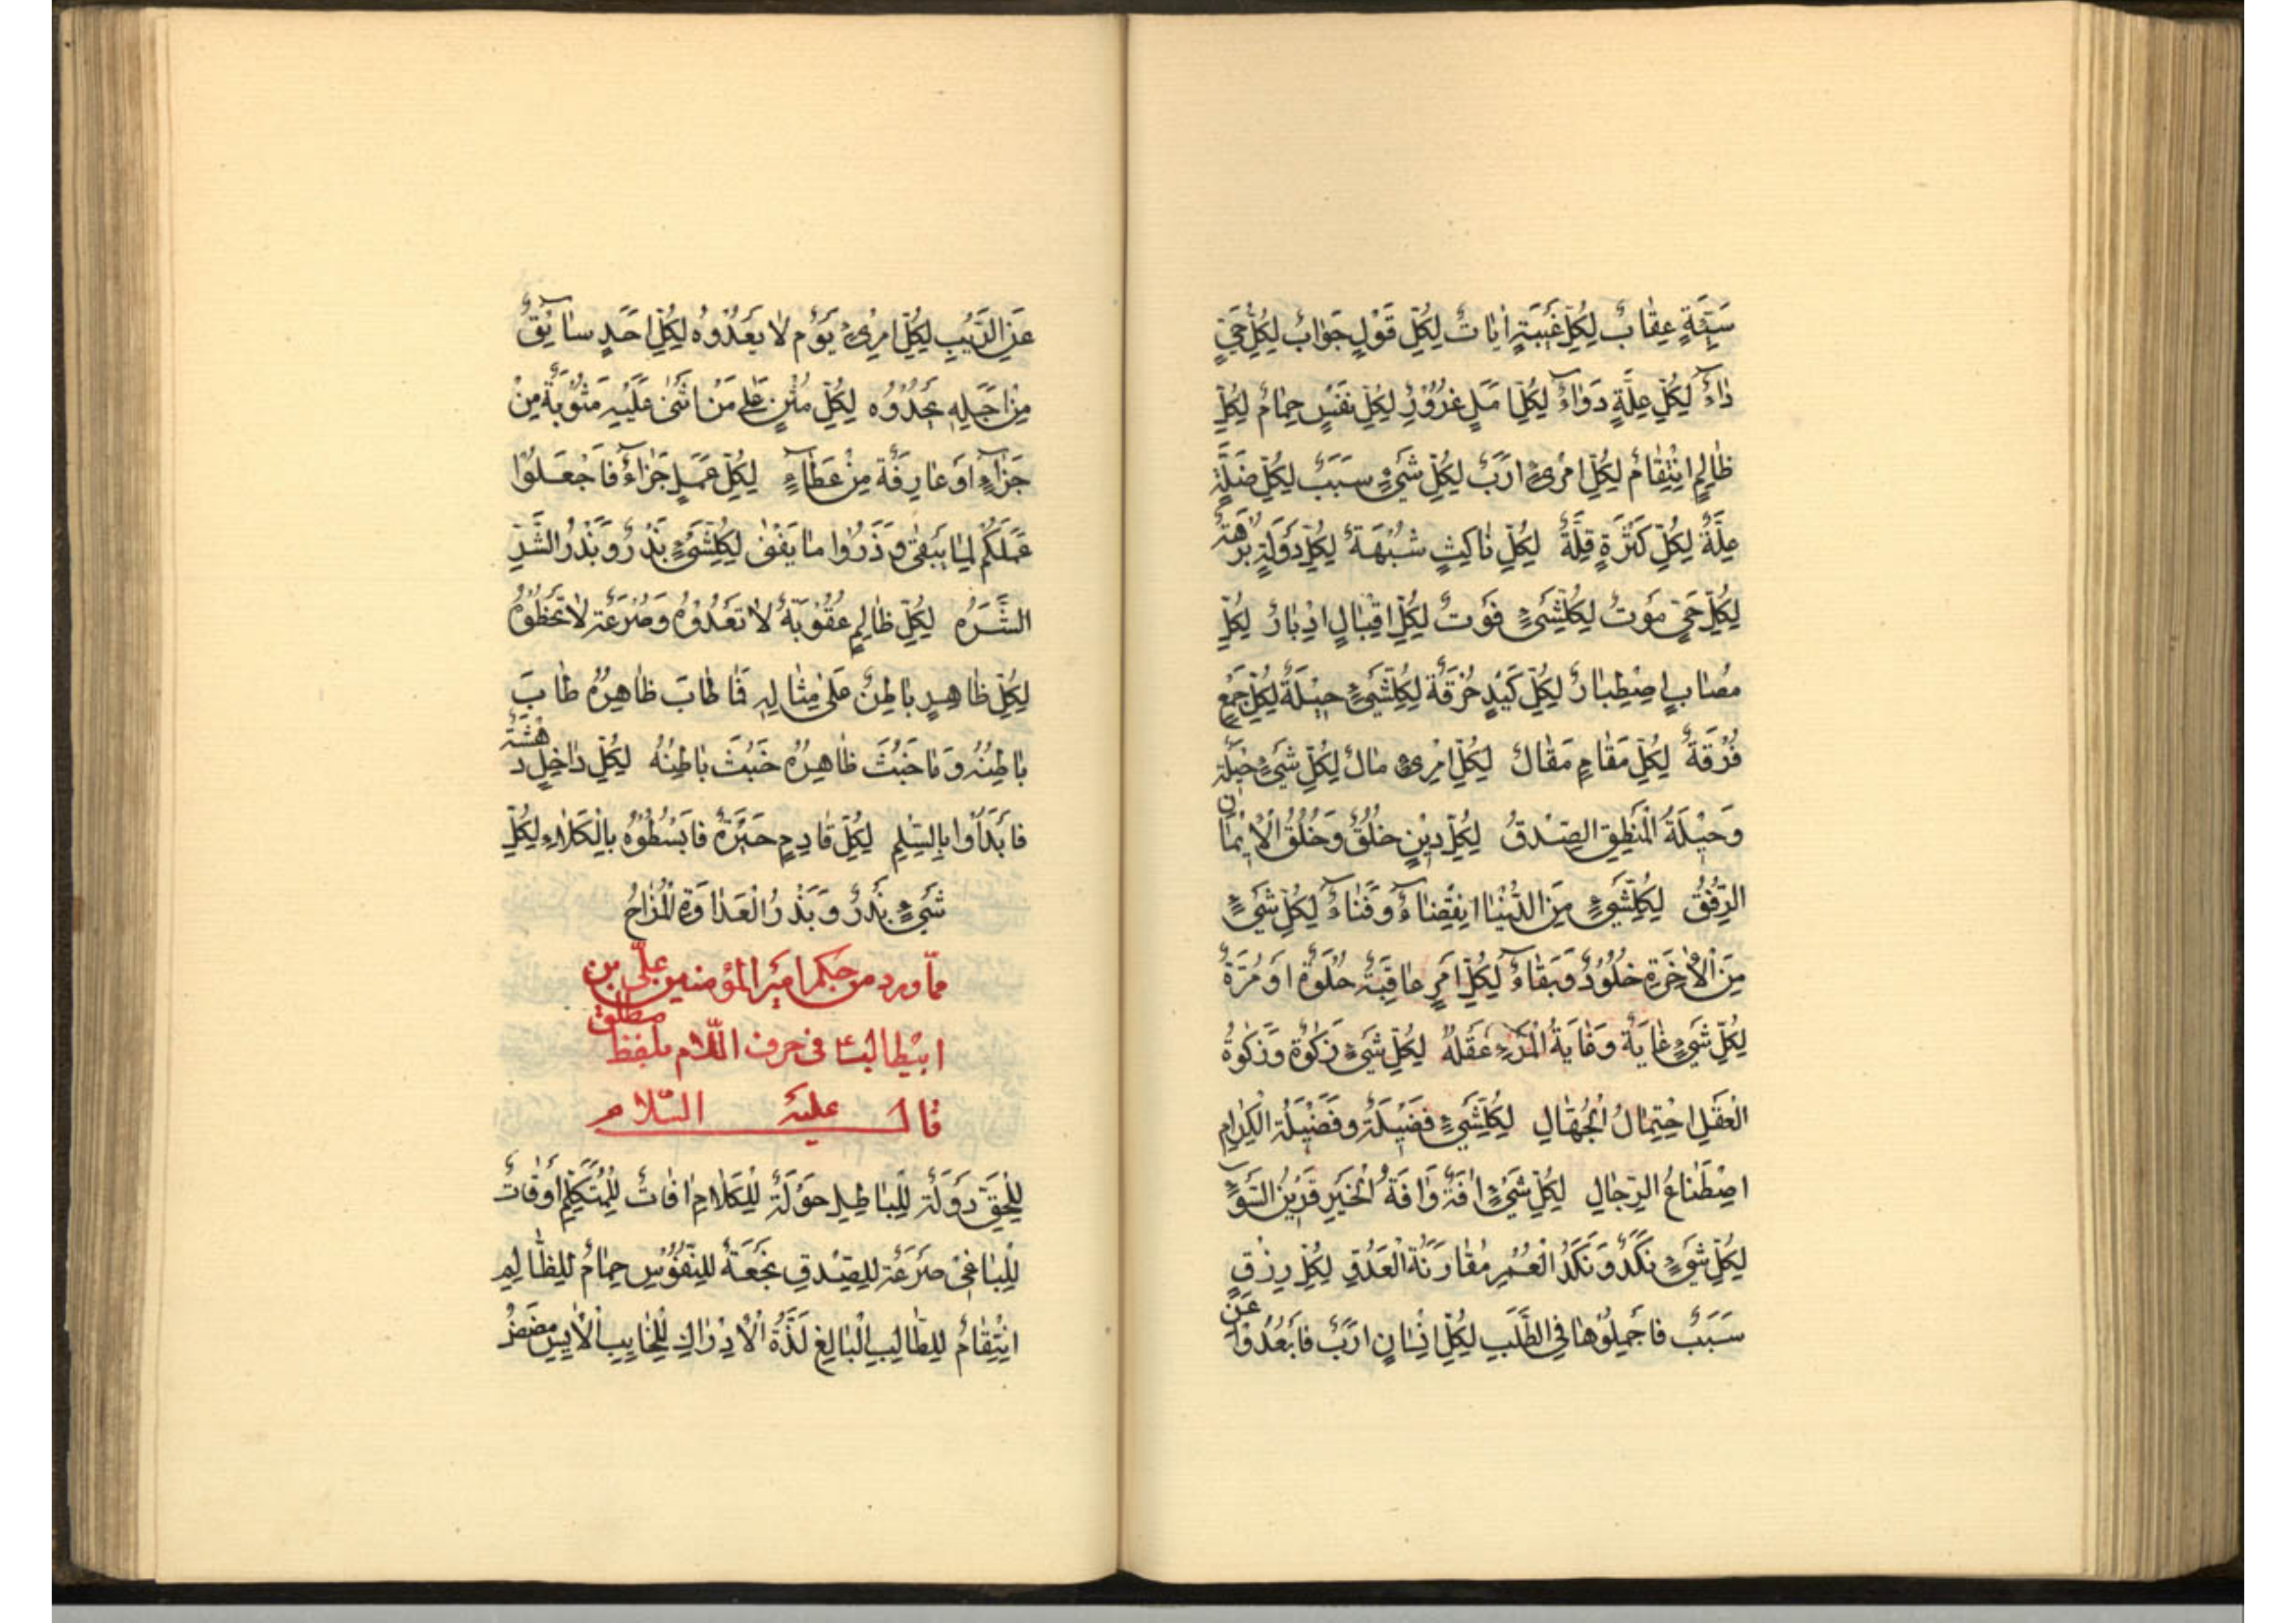 سَيِّئَةٍ عِقٰابٌ لِكُلِّ غَيْبَةٍ اِيٰابٌ لِكُلِّ قَوْلٍ جَوٰابٌ لِكُلِّ حَيٍّ
دٰاءٌ لِكُلِّ عِلَّةٍ دَوٰاءٌ لِكُلِّ اَمَلٍ غُرُوْرٌ لِكُلِّ نَفْسٍ حِمٰامٌ لِكُلِّ
ظٰالِمٍ اِنْتِقٰامٌ لِكُلِّ امْرِئٍ اَرَبٌ لِكُلِّ شَيْءٍ سَبَبٌ لِكُلِّ ضَلَّةٍ
عِلَّةٌ لِكُلِّ كَثْرَةٍ قِلَّةٌ لِكُلِّ نٰاكِثٍ شُبْهَةٌ لِكُلِّ دَوْلَةٍ بُرْهَةٌ
لِكُلِّ حَيٍّ مَوْتٌ لِكُلِّشَيْءٍ فَوْتٌ لِكُلِّ اِقْبٰالٍ اِدْبٰارٌ لِكُلِّ
مُصٰابٍ اِصْطِبٰارٌ لِكُلِّ كَبِدٍ حُرْقَةٌ لِكُلِّشَيْءٍ حِيْلَةٌ لِكُلِّ جَمْعٍ
فُرْقَةٌ لِكُلِّ مَقٰامٍ مَقٰالٌ لِكُلِّ امْرِئٍ مٰالٌ لِكُلِّ شَيْءٍ حِيْلَةٌ
وَحِيْلَةُ الْمَنْطِقِ الصِّدْقُ لِكُلِّ دِيْنٍ خُلُقٌ وَخُلُقُ الْاِيْمٰانِ
الرِّفْقُ لِكُلِّشَيْءٍ مِنَ الدُّنْيٰا اِنْقِضٰاءٌ وَفَنٰاءٌ لِكُلِّ شَيْءٍ
مِنَ الْاٰخِرَةِ خُلُوْدٌ وَبَقٰاءٌ لِكُلِّ اَمْرٍ عٰاقِبَةٌ حُلْوَةٌ اَوْ مُرَّةٌ
لِكُلِّ شَيْءٍ غٰايَةٌ وَغٰايَةُ الْمَرْءِ عَقْلُهُ لِكُلِّ شَيْءٍ زَكٰوةٌ وَزَكٰوةُ
الْعَقْلِ احْتِمٰالُ الْجُهّٰالِ لِكُلِّشَيْءٍ فَضِيْلَةٌ وَفَضِيْلَةُ الْكِرٰامِ
اصْطِنٰاعُ الرِّجٰالِ لِكُلِّ شَيْءٍ اٰفَةٌ وَاٰفَةُ الْخَيْرِ قَرِيْنُ السَّوْءِ
لِكُلِّ شَيْءٍ نَكَدٌ وَنَكَدُ الْعُمْرِ مُقٰارَنَةُ الْعَدُوِّ لِكُلِّ رِزْقٍ
سَبَبٌ فَاَجْمِلُوْهٰا فِي الطَّلَبِ لِكُلِّ اِنْسٰانٍ اَرَبٌ فَابْعُدُوْا عَنِ
عَنِ الرَّيْبِ لِكُلِّ امْرِئٍ يَوْمٌ لٰا يَعْدُوْهُ لِكُلِّ اَحَدٍ سٰائِقٌ
مِنْ اَجَلِهِ يَحْدُوْهُ لِكُلِّ مُثْنٍ عَلٰى مَنْ اَثْنٰى عَلَيْهِ مَثُوْبَةٌ مِنْ
جَزٰاءٍ اَوْ عٰارِفَةٌ مِنْ عَطٰاءٍ لِكُلِّ عَمَلٍ جَزٰاءٌ فَاجْعَلُوْا
عَمَلَكُمْ لِمٰا يَبْقٰى وَذَرُوْا مٰا يَفْنٰى لِكُلِّشَيْءٍ بَذْرٌ وَبَذْرُ الشَّرِّ
الشَّرَهُ لِكُلِّ ظٰالِمٍ عُقُوْبَةٌ لٰا تَعْدُوْهُ وَصَرْعَةٌ لٰا تَخْطُوْهُ
لِكُلِّ ظٰاهِرٍ بٰاطِنٌ عَلٰى مِثٰالِهِ فَمٰا طٰابَ ظٰاهِرُهُ طٰابَ
بٰاطِنُهُ وَمٰا خَبُثَ ظٰاهِرُهُ خَبُثَ بٰاطِنُهُ لِكُلِّ دٰاخِلٍ دَهْشَةٌ
فَابْدَأُوْا بِالسَّلٰمِ لِكُلِّ قٰادِمٍ حَيْرَةٌ فَابْسُطُوْهُ بِالْكَلٰامِ لِكُلِّ
شَيْءٍ بَذْرٌ وَبَذْرُ الْعَدٰاوَةِ الْمُزٰاحُ
ممّا ورد من حكم امير المؤمنين علىّ بن
ابيطالب ع فى حرف اللّام بلفظ مطلق
قال عليه السّلام
لِلْحَقِّ دَوْلَةٌ لِلْبٰاطِلِ جَوْلَةٌ لِلْكَلٰامِ اٰفٰاتٌ لِلْمُتَكَلِّمِ اَوْقٰاتٌ
لِلْبٰاغِيْ صَرْعَةٌ لِلصِّدْقِ نُجْعَةٌ لِلنُّفُوْسِ حِمٰامٌ لِلظّٰالِمِ
انْتِقٰامٌ لِلطّٰالِبِ الْبٰالِغِ لَذَّةُ الْاِدْرٰاكِ لِلْخٰائِبِ الْاٰيِسِ مَضَضُ